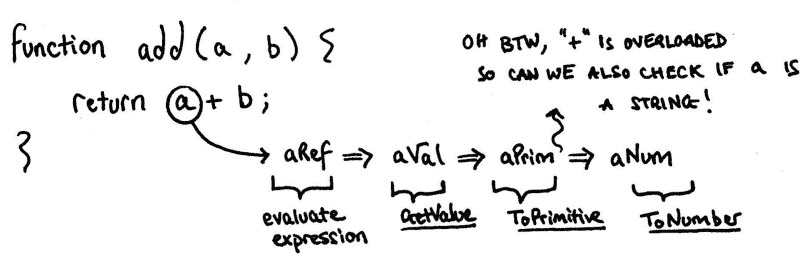 function add(a, b) {
return a + b;
}
OH BTW, "+" IS OVERLOADED
SO CAN WE ALSO CHECK IF a IS
A STRING!
aRef ⇒ aVal ⇒ aPrim ⇒ aNum
evaluate expression
GetValue
ToPrimitive
ToNumber